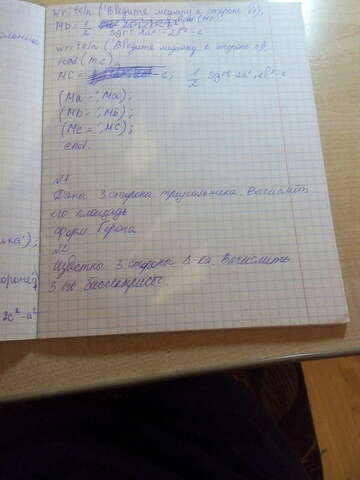 writeln ('Введите медиану к стороне b');
Mb = 1/2 sqrt 2a² - 2b² - c
writeln ('Введите медиану к стороне c');
read (mc);
MC = 1/2 sqrt 2a², 2b² - c
(Ma = ', Ma);
(Mb = ', Mb);
(Mc = ', Mc);
end.
№1
Дана 3 сторона треугольника. Вычислить
его площадь
Форм. Герона
№2
Известны 3 стороны Δ-ка. Вычислить
3 его биссектрисы.
2c² - a²